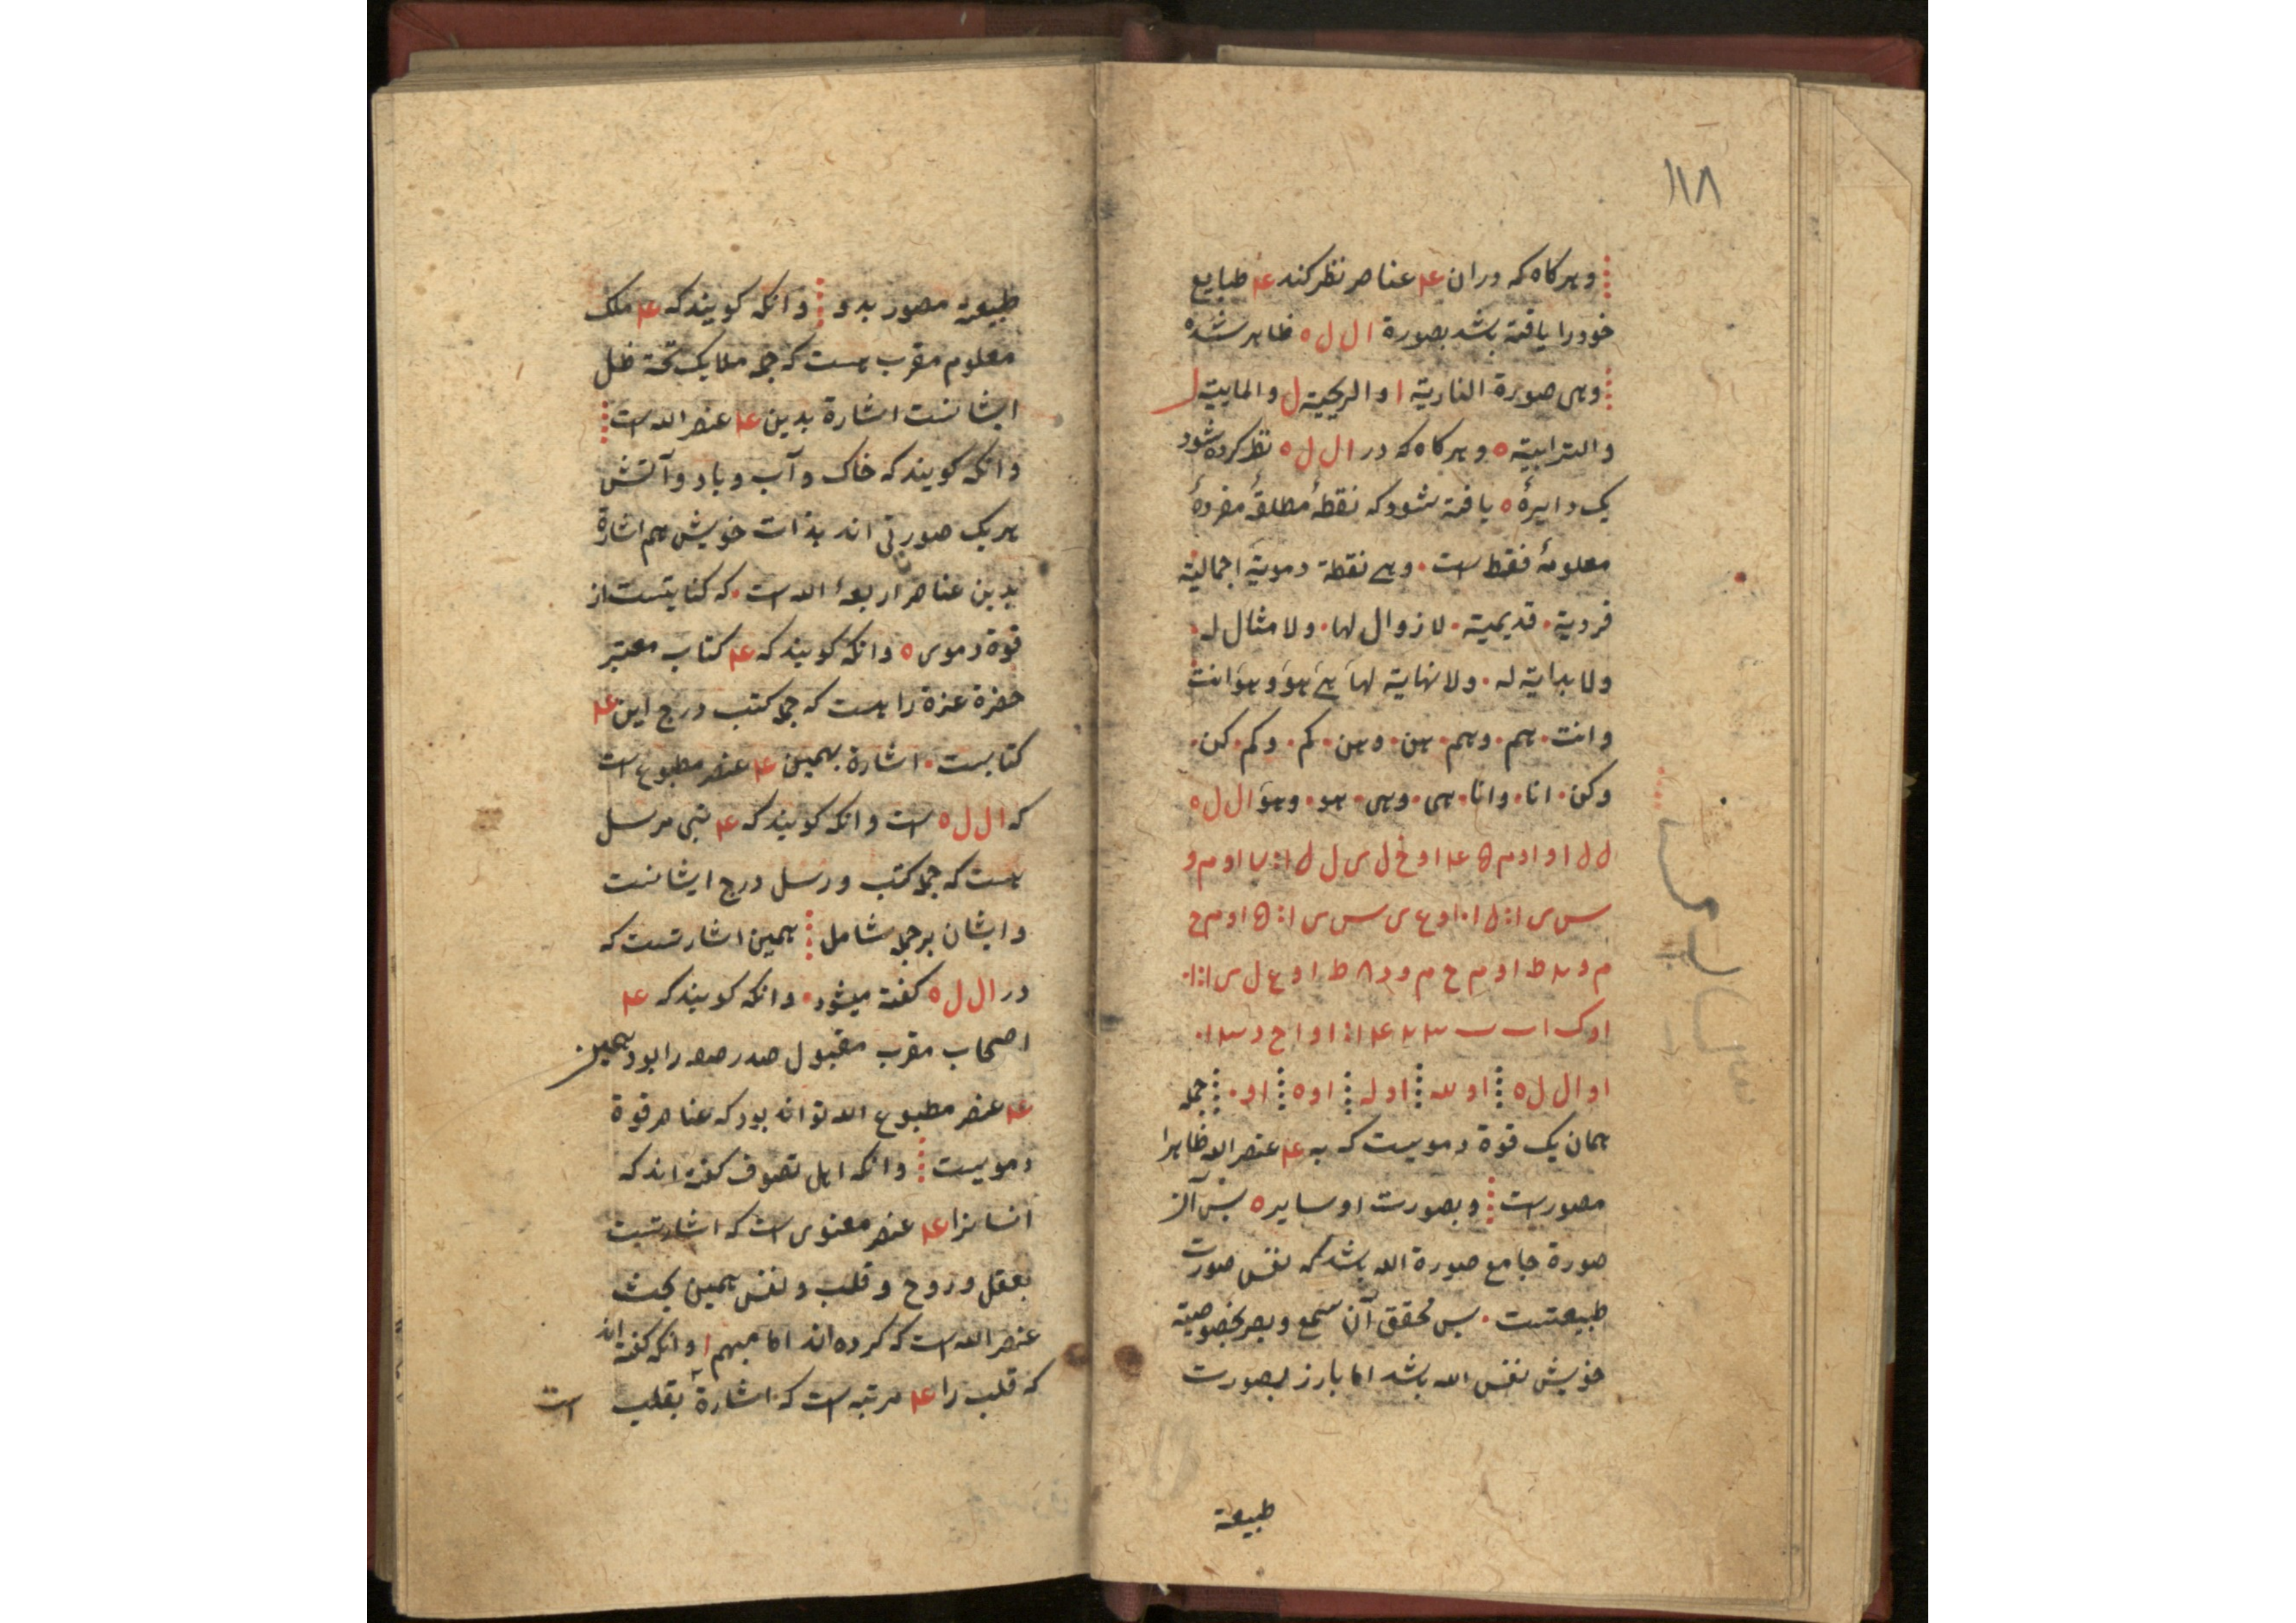 ۱۱۸
وهرکاه که دران ۴ عناصر نظر کند ۴ طبایع
خود را یافته باشد بصورة ا ل ل ه ظاهر شده
وهی صورة الناریة ا والریحیة ل والماییة ل
والترابیة ه وهرکاه که در ا ل ل ه نظر کرده شود
یک دایرۀ ه یافته شود که نقطۀ مطلقۀ مفردۀ
معلومۀ فقط است وهی نقطة دمویة اجمالیة
فردیة قدیمیة لا زوال لها ولا مثال له
ولا بدایة له ولا نهایة لها هی هو وهو انت
وانت هم وهم هن وهن کم وکم کن
وکن انا وانا هی وهی هو وهو ا ل ل ه
او ا ل ل ه او لله او له او ه او جمله
همان یک قوة دمویست که به ۴ عنصر الله ظاهرا
مصور است وبصورت او سایره پس آن
صورة جامع صورة الله باشد که نفس صورت
طبیعتست پس محقق آن سمع وبصر بخصوصیة
خویش نفس الله باشد اما بارز بصورت
طبیعة
طبیعة مصور بدو وانکه کویند که ۴ ملک
معلوم مقرب هست که جمله ملایک تحت ظل
ایشانست اشارة بدین ۴ عنصر الله است
وانکه کویند که خاک وآب وباد وآتش
هر یک صورتی اند بذات خویش هم اشارة
بدین عناصر اربعۀ الله است که کنایتست از
قوة دموی ه وانکه کویند که ۴ کتاب معتبر
حضرة عزة را هست که جمله کتب درج این ۴
کتابست اشارة بهمین ۴ عنصر مطبوع است
که ا ل ل ه است وانکه کویند که ۴ نبی مرسل
هست که جمله کتب ورسل درج ایشانست
وایشان بر جمله شامل همین اشارتست که
در ا ل ل ه کفته میشود وانکه کویند که ۴
اصحاب مقرب مقبول صدر صفه را بود همین
۴ عنصر مطبوع الله تواند بود که عناصر قوة
دمویست وانکه اهل تصوف کفته اند که
انسانرا ۴ عنصر معنوی است که اشارتست
بعقل وروح وقلب ونفس همین بحث
عنصر الله است که کرده اند اما مبهم ا وانکه کفته اند
که قلب را ۴ مرتبه است که اشارة بقلب است